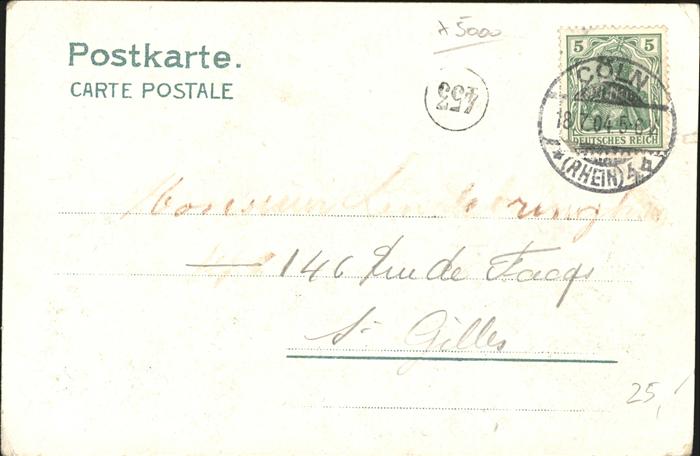 x 5000
Postkarte.
CARTE POSTALE
5 5
DEUTSCHES REICH
CÖLN
18.7.04.5-6
*(RHEIN)
Monsieur
146 rue de
St Gilles
25,